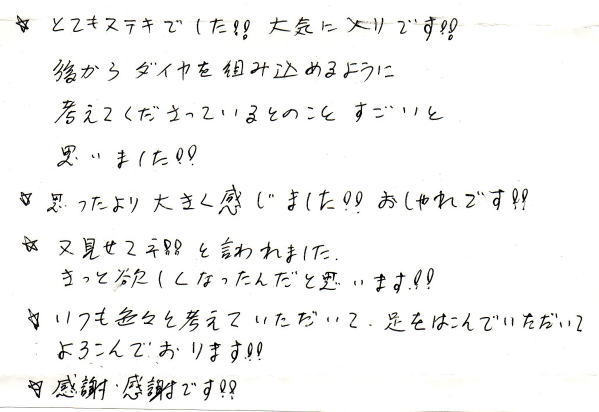 ☆ とてもステキでした!! 大気に入りです!!
後からダイヤを組み込めるように
考えてくださっているとのこと すごいと
思いました!!
☆ 思ったより大きく感じました!! おしゃれです!!
☆ 又見せてネ!!! と言われました.
きっと欲しくなったんだと思います!!
☆ いつも色々と考えていただいて、足をはこんでいただいて
よろこんでおります!!
☆ 感謝・感謝です!!